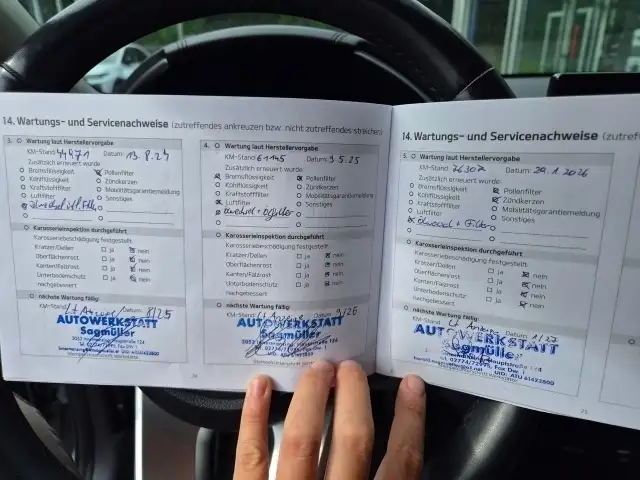 14. Wartungs- und Servicenachweise (zutreffendes ankreuzen bzw. nicht zutreffendes streichen)
3. Wartung laut Herstellervorgabe
KM-Stand Datum: 13.8.24
Zusätzlich erneuert wurde:
Bremsflüssigkeit Pollenfilter
Kühlflüssigkeit Zündkerzen
Kraftstofffilter Mobilitätsgarantiemeldung
Luftfilter Sonstiges
Karosserieinspektion durchgeführt
Karosseriebeschädigung festgestellt:
Kratzer/Dellen ja nein
Oberflächenrost ja nein
Kanten/Falzrost ja nein
Unterbodenschutz ja nein
nachgebessert
nächste Wartung fällig:
KM-Stand Lt Anzeige Datum: 8/25
AUTOWERKSTATT
Sagmüller
4. Wartung laut Herstellervorgabe
KM-Stand 61145 Datum: 9.5.25
Zusätzlich erneuert wurde:
Bremsflüssigkeit Pollenfilter
Kühlflüssigkeit Zündkerzen
Kraftstofffilter Mobilitätsgarantiemeldung
Luftfilter Sonstiges
Ölwechsel + Ölfilter
Karosserieinspektion durchgeführt
Karosseriebeschädigung festgestellt:
Kratzer/Dellen ja nein
Oberflächenrost ja nein
Kanten/Falzrost ja nein
Unterbodenschutz ja nein
nachgebessert
nächste Wartung fällig:
KM-Stand Lt Anzeige Datum: 5/26
AUTOWERKSTATT
Sagmüller
14. Wartungs- und Servicenachweise (zutref
5. Wartung laut Herstellervorgabe
KM-Stand 76307 Datum: 29.1.2026
Zusätzlich erneuert wurde:
Bremsflüssigkeit Pollenfilter
Kühlflüssigkeit Zündkerzen
Kraftstofffilter Mobilitätsgarantiemeldung
Luftfilter Sonstiges
Ölwechsel + Filter
Karosserieinspektion durchgeführt
Karosseriebeschädigung festgestellt:
Kratzer/Dellen ja nein
Oberflächenrost ja nein
Kanten/Falzrost ja nein
Unterbodenschutz ja nein
nachgebessert
nächste Wartung fällig:
KM-Stand Lt Anzeige Datum: 1/27
AUTOWERKSTATT
Sagmüller